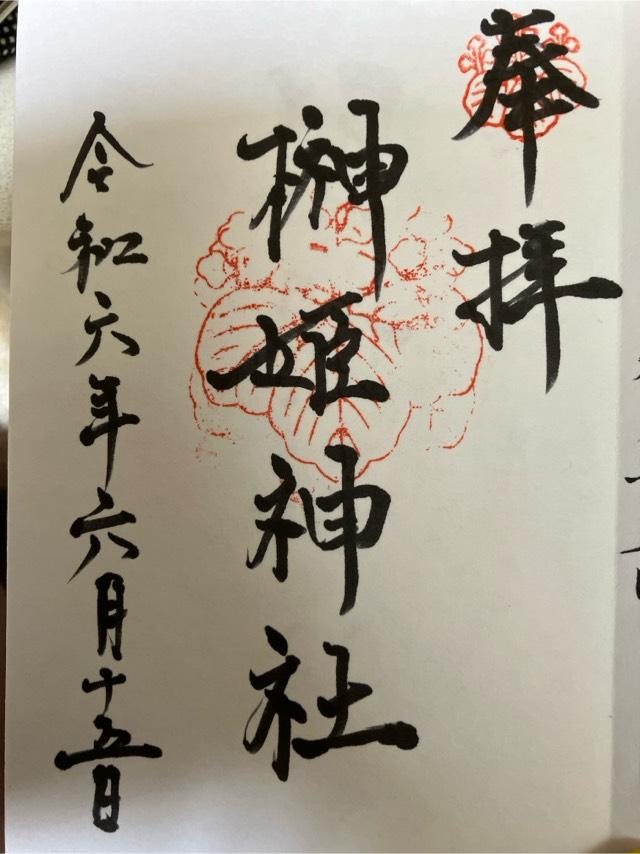 奉拝
榊姫神社
令和六年六月十五日